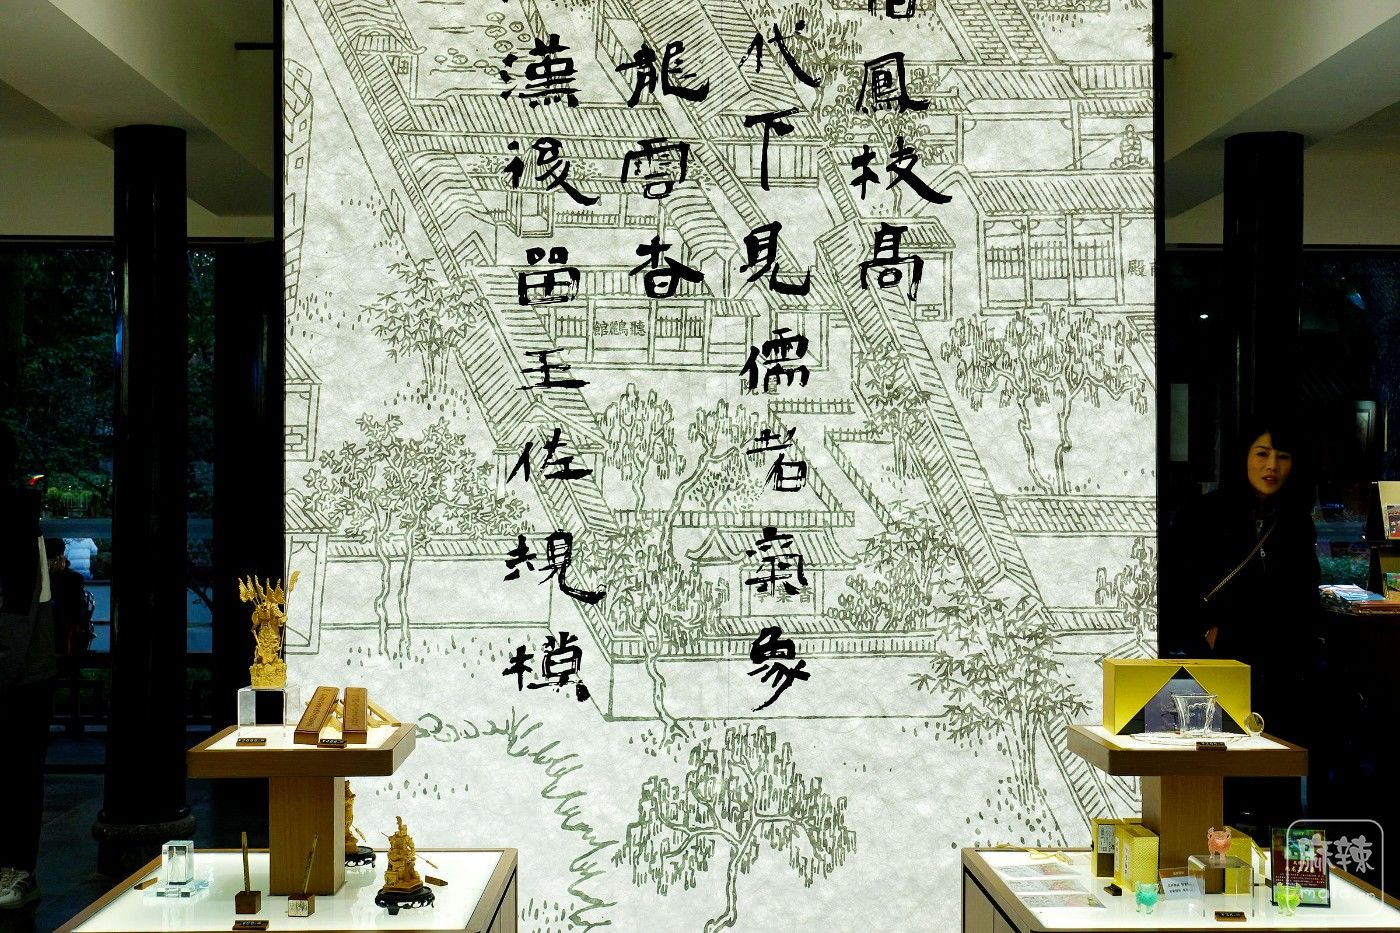 鳳枝高
代下見儒者氣象
龍雲杳
漢後留王佐規模
聽鸝館
殿
麻辣